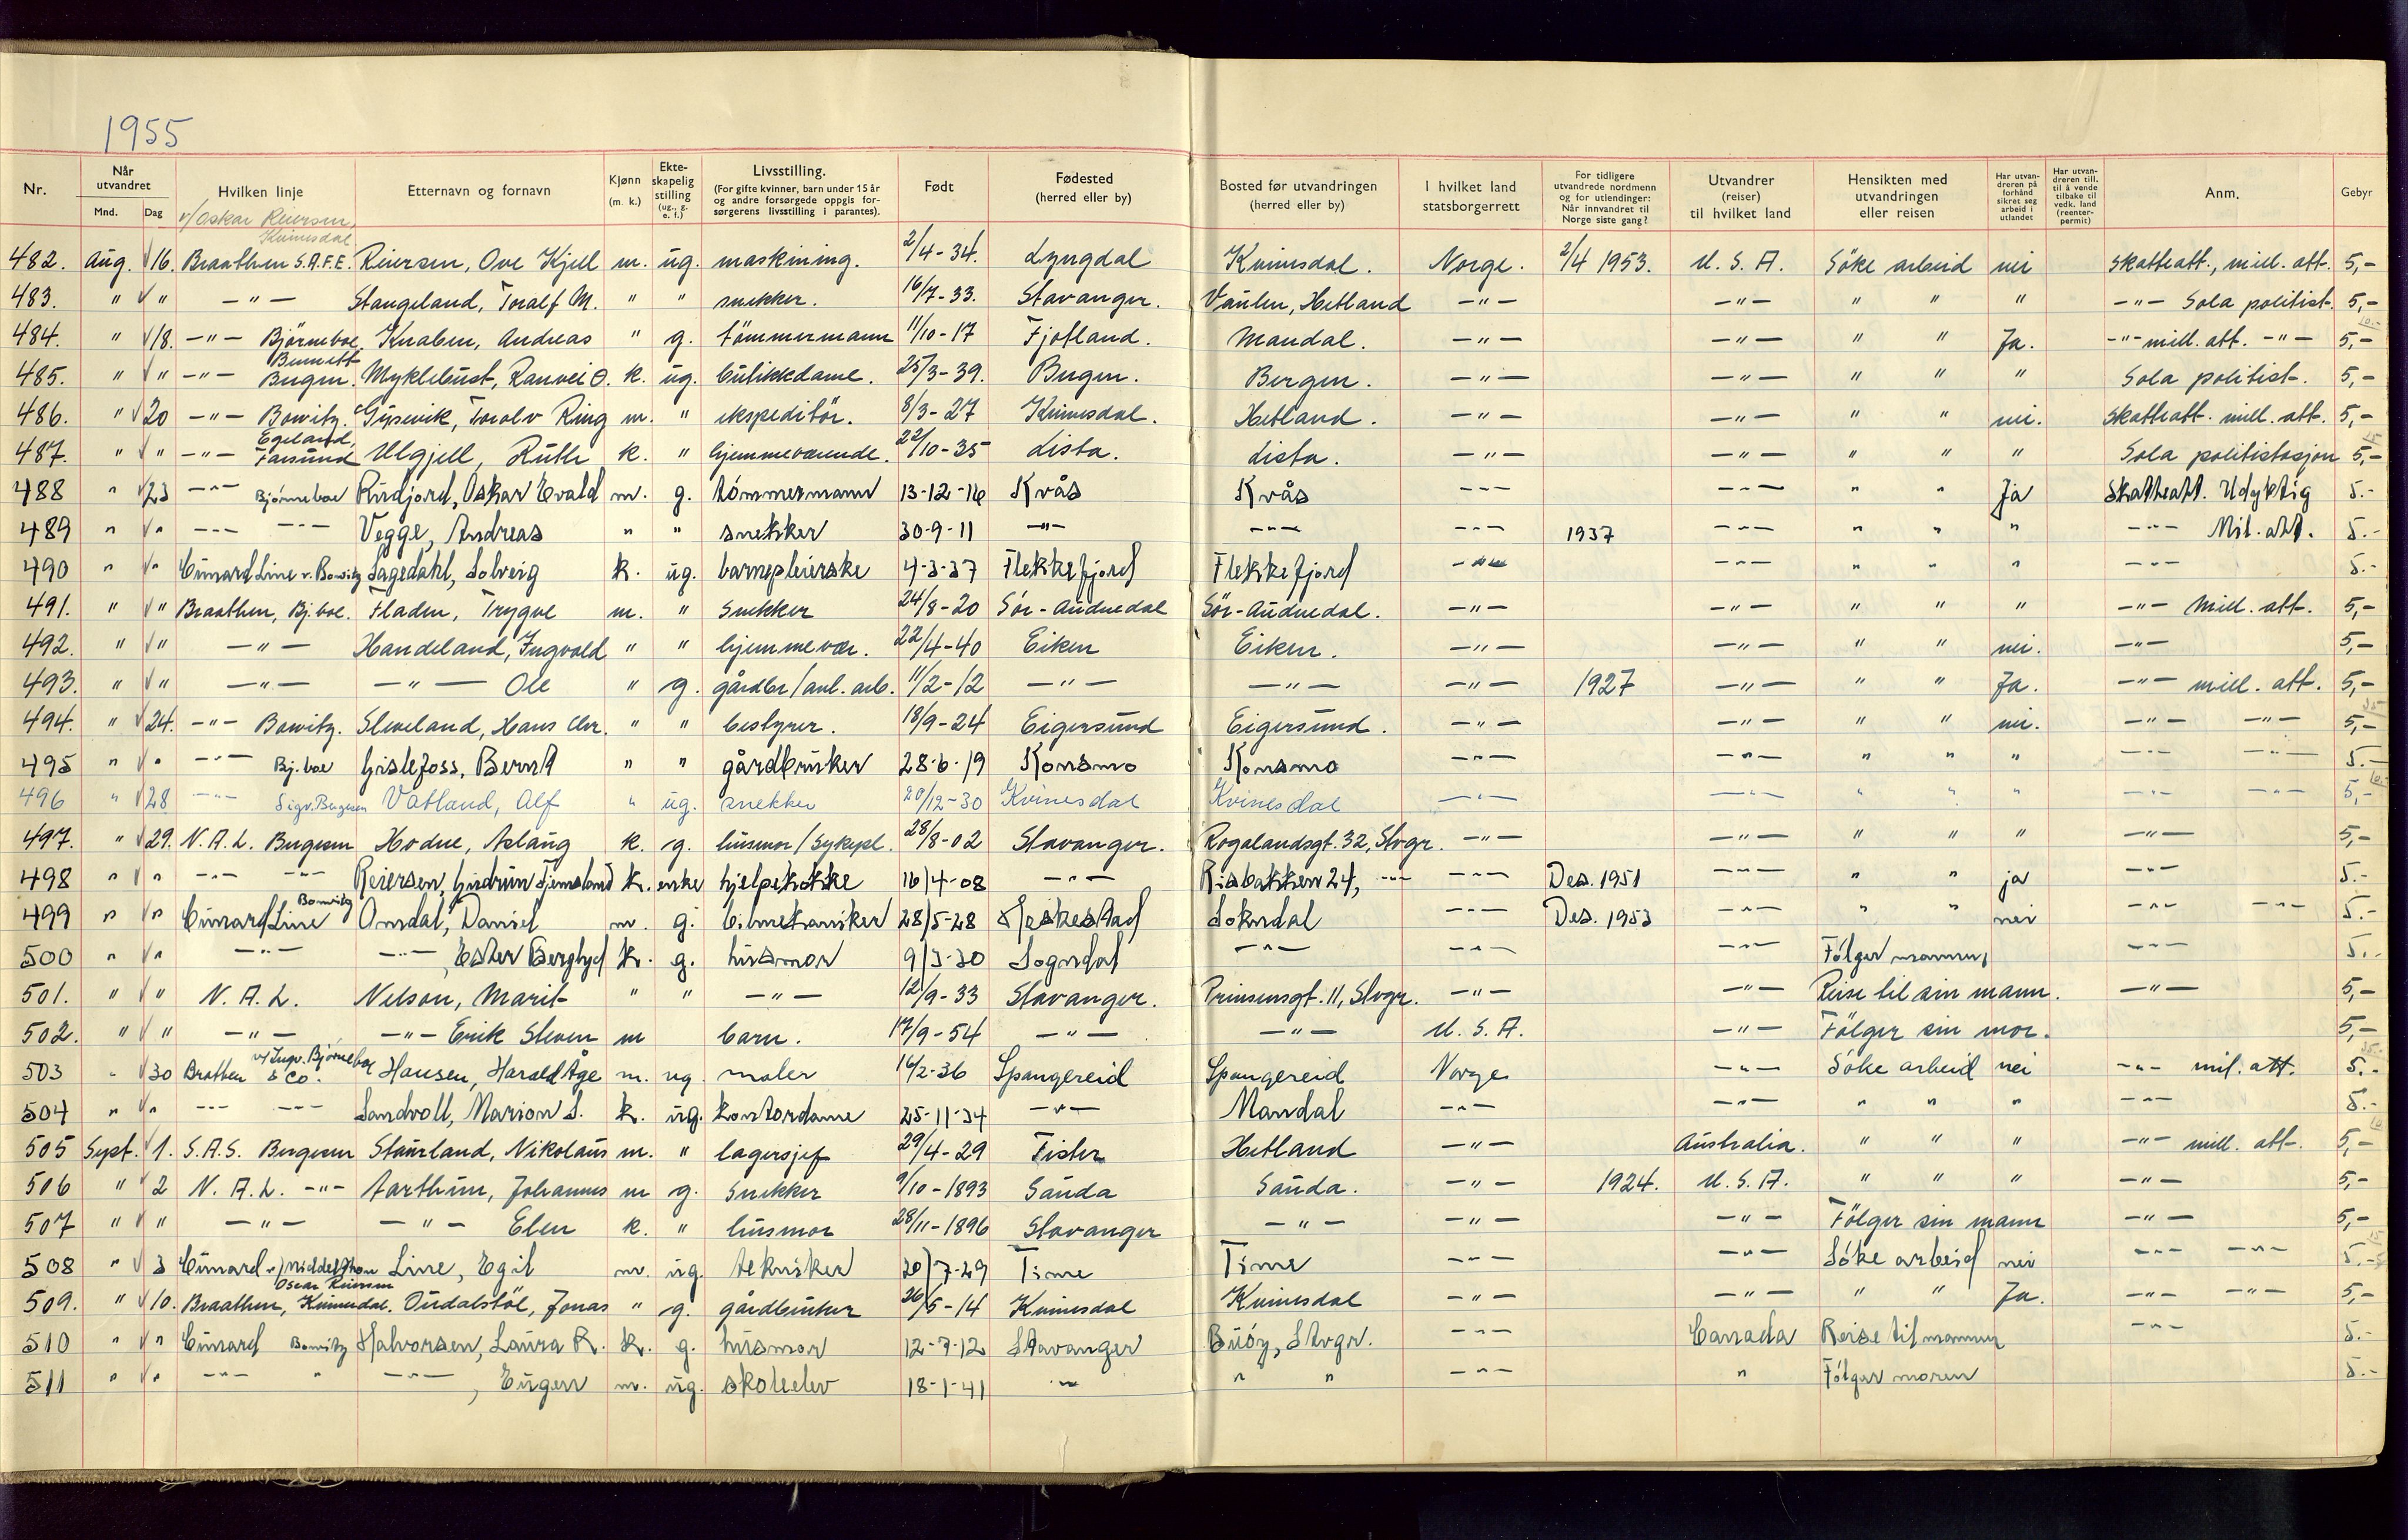 1955
Nr. Når utvandret Mnd. Dag Hvilken linje Etternavn og fornavn Kjønn (m. k.) Ekteskapelig stilling (ug., g. e. f.) Livsstilling. (For gifte kvinner, barn under 15 år og andre forsørgede oppgis forsørgerens livsstilling i parantes). Født Fødested (herred eller by) Bosted før utvandringen (herred eller by) I hvilket land statsborgerrett For tidligere utvandrede nordmenn og for utlendinger: Når innvandret til Norge siste gang? Utvandrer (reiser) til hvilket land Hensikten med utvandringen eller reisen Har utvandreren på forhånd sikret seg arbeid i utlandet Har utvandreren till. til å vende tilbake til vedk. land (reenterpermit) Anm. Gebyr
v/Oskar Reiersen, Kvinesdal
482. Aug. 16. Braathen S.A.F.E. Reiersen, Ove Kjell m. ug. maskining. 2/4-34. Lyngdal Kvinesdal. Norge. 2/4 1953. U.S.A. Söke arbeid nei Skatteatt., mill. att. 5,-
483. " " -"- Stangeland, Toralf M. " " snekker. 16/7-33. Stavanger. Vaulen, Hetland -"- -"- " " " -"- Sola politist. 5,-
484. " 18. -"- Björneboe. Knaben, Andreas " g. tömmermann 11/10-17 Fjotland. Mandal. -"- -"- " " Ja. -"- mill. att. -"- 5,-
485. " " -"- Bennett Bergen. Myklebust, Ranvei O. k. ug. butikkdame. 25/3-39. Bergen. Bergen. -"- -"- " " " Sola politist. 5,-
486. " 20 -"- Bowitz. Gysevik, Toralv Ring m. " ekspeditör. 8/3-27 Kvinesdal. Hetland. -"- -"- " " nei. Skatteatt. mill. att. 5,-
487. " " -"- Egeland, Farsund Ulgjell, Ruth k. " hjemmeværende. 22/10-35 Lista. Lista. -"- -"- " " " Sola politistasjon 5,-
488 " 23 -"- Bjørneboe Rindjord, Oskar Evald m. g. tómmermann 13-12-16 Kvås Kvås -"- -"- " " Ja Skatteatt. Udyktig 5.-
489 " " -"- -"- Vegge, Andreas " " snekker 30-9-11 -"- -"- -"- 1937 -"- " " " -"- Mil. att. 5.-
490 " " Cunard Line v. Bowitz Lagedahl, Solveig k. ug. barnepleierske 4-3-37 Flekkefjord Flekkefjord -"- -"- " " " -"- 5.-
491. " " Braathen, Bj.boe. Fladen, Trygve m. " Snekker 24/8-20 Sör-Audnedal Sör-Audnedal. -"- -"- " " " -"- Mill. att. 5,-
492. " " -"- Handeland, Ingvald " " hjemmevær. 22/4-40 Eiken Eiken. -"- -"- " " nei. -"- 5,-
493. " " -"- -"- Ole " g. gårdbr/anl. arb. 11/2-12 -"- -"- -"- 1927 -"- " " Ja. -"- mill. att. 5,-
494. " 24. -"- Bowitz. Sleveland, Hans Chr. " " bestyrer. 18/9-24 Eigersund Eigersund. -"- -"- " " nei. -"- -"- 5,-
495 " " -"- Bj.boe Gislefoss, Bernt " " gårdbruker 28-6-19 Konsmo Konsmo -"- -"- " " " -"- -"- 5.-
496 " 28 -"- Sigv. Bergesen Vatland, Alf " ug. snekker 20/12-30 Kvinesdal Kvinesdal -"- -"- " " " -"- -"- 5,-
497. " 29. N.A.L. Bergesen Hodne, Aslaug k. g. husmor/Sykepl. 28/8-02 Stavanger. Rogalandsgt. 32, Stvgr. -"- -"- " " " -"- 5,-
498 " " -"- -"- Reiersen, Gudrun Tjemsland k. enke hjelpekokke 16/4-08 -"- Risbakken 24, -"- -"- Des. 1951 -"- " " ja -"- 5.-
499 " " Cunard Line Bowitz Omdal, Daniel m. g. bilmekaniker 28/5-28 Heskestad Sokndal -"- Des. 1953 -"- " " nei -"- -"- 5.-
500 " " -"- -"-, Ester Berglyd k. g. husmor 9/3-30 Sogndal -"- -"- -"- Fólger mannen -"- 5.-
501. " " N.A.L. Nelson, Marit " " -"- 12/9-33 Stavanger. Prinsensgt. 11, Stvgr. -"- -"- Reise til sin mann. -"- 5,-
502. " " -"- -"- Erik Steven m barn. 17/9-54 -"- -"- U.S.A. -"- Fölger sin mor. 5,-
503 " 30 Brathen v/Ingv. Bjørneboe & Co. Hansen, Harald Åge m. ug. maler 16/2-36 Spangereid Spangereid Norge -"- Söke arbeid nei -"- mil. att. 5.-
504 " " -"- -"- Sandvoll, Marion S. k. ug. kontordame 25-11-34 -"- Mandal -"- -"- " " " -"- 5.-
505 Sept. 1. S.A.S. Bergesen Staurland, Nikolaus m. " lagersjef 29/4-29 Fister Hetland -"- Australia. " " " -"- mill. att. 5,-
506 " 2 N.A.L. -"- Aarthun, Johannes m g. Snekker 9/10-1893 Sauda Sauda. -"- 1924. U.S.A. " " " -"- 5,-
507 " " -"- -"- Elen k. " husmor 28/11-1896 Stavanger -"- -"- -"- Fölger sin mann -"- 5,-
508 " 3 Cunard v/Middelthon Line, Egil m. ug. tekniker 20/7-29 Time Time -"- -"- Söke arbeid nei -"- -"- 5.-
509. " 10. Braathen, Oscar Reiersen Kvinesdal. Oudalstöl, Jonas " g. gårdbruker 26/5-14 Kvinesdal Kvinesdal -"- -"- " " Ja. -"- -"- 5,-
510 " " Cunard Bowitz Halvorsen, Laura R. k. g. husmor 12-7-12 Stavanger Buöy, Stvgr. -"- Canada Reise til mannen -"- 5.-
511 " " -"- " -"-, Eugen m. ug. skoleelev 18-1-41 -"- " " -"- " Fólger moren 5.-